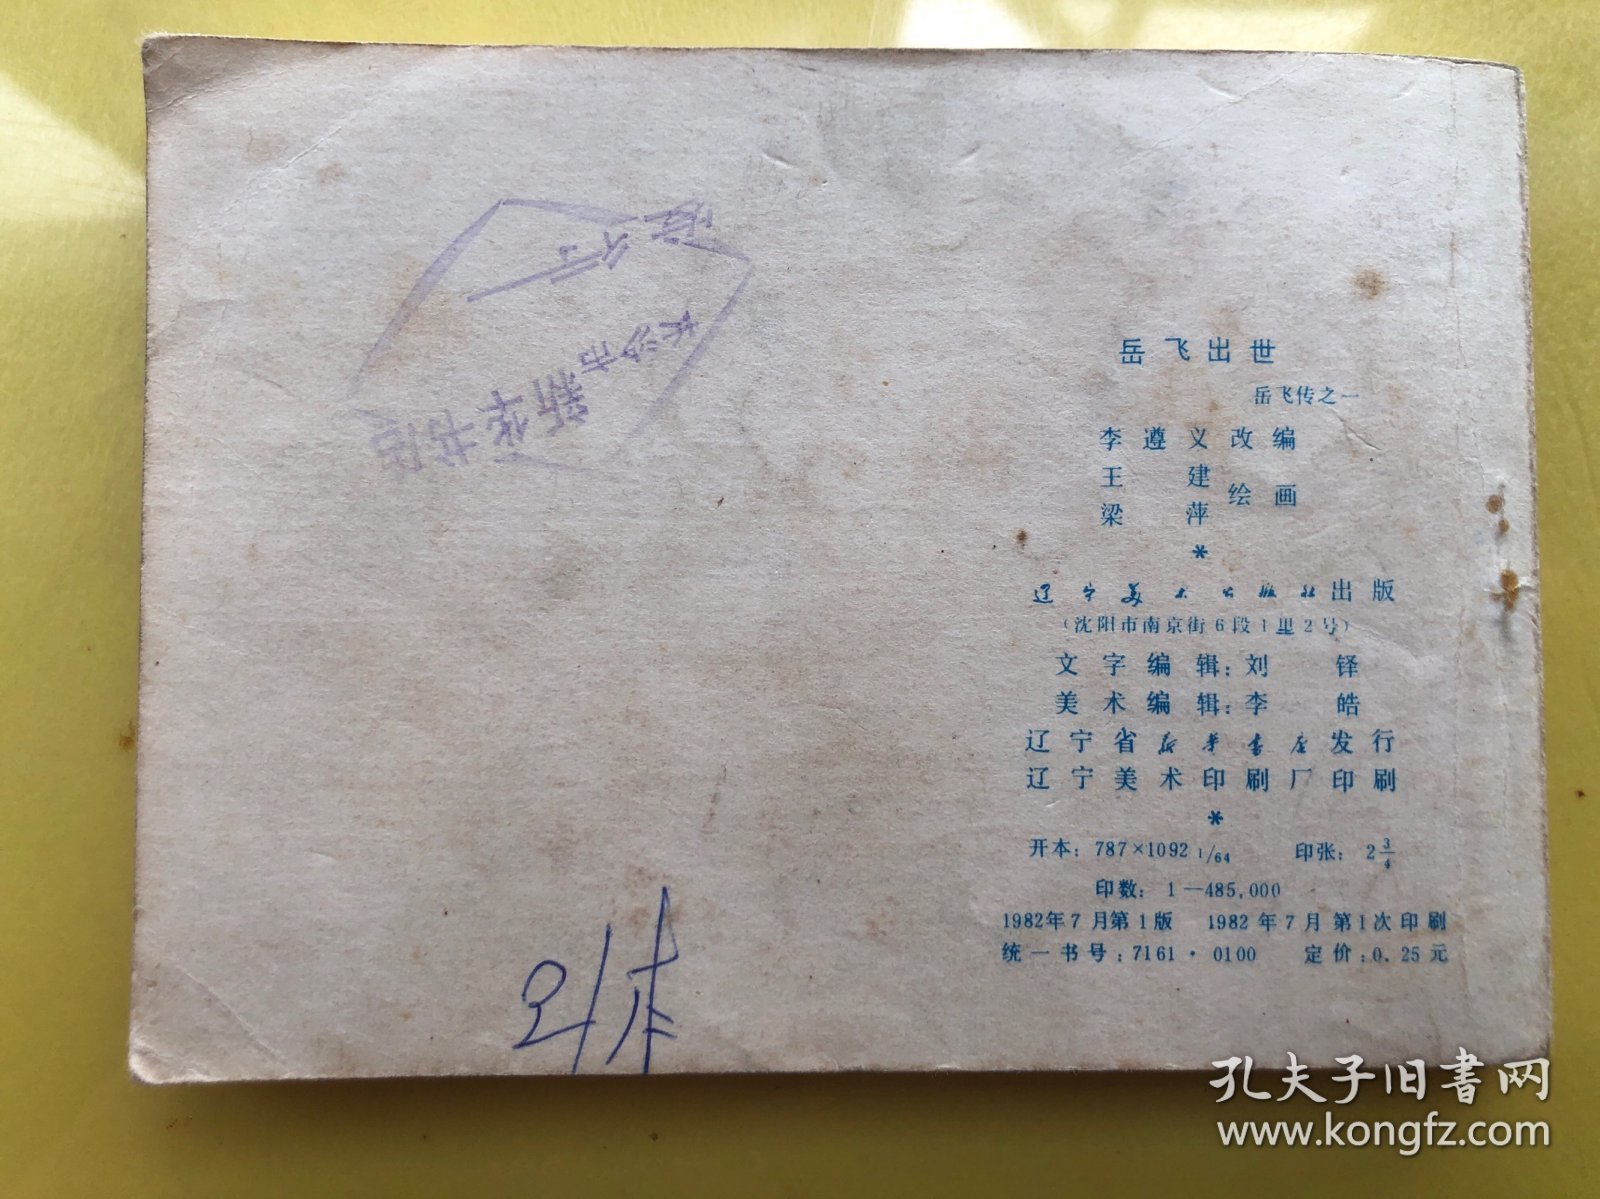 岳飞出世
岳飞传之一
李遵义改编
王建
梁萍
绘画
*
辽宁美术出版社出版
（沈阳市南京街6段1里2号）
文字编辑：刘铎
美术编辑：李皓
辽宁省新华书店发行
辽宁美术印刷厂印刷
*
开本：787×1092 1/64 印张：2 3/4
印数：1—485,000
1982年7月第1版 1982年7月第1次印刷
统一书号：7161·0100 定价：0.25元
长沙市
新华书店
孔夫子旧書网
www.kongfz.com